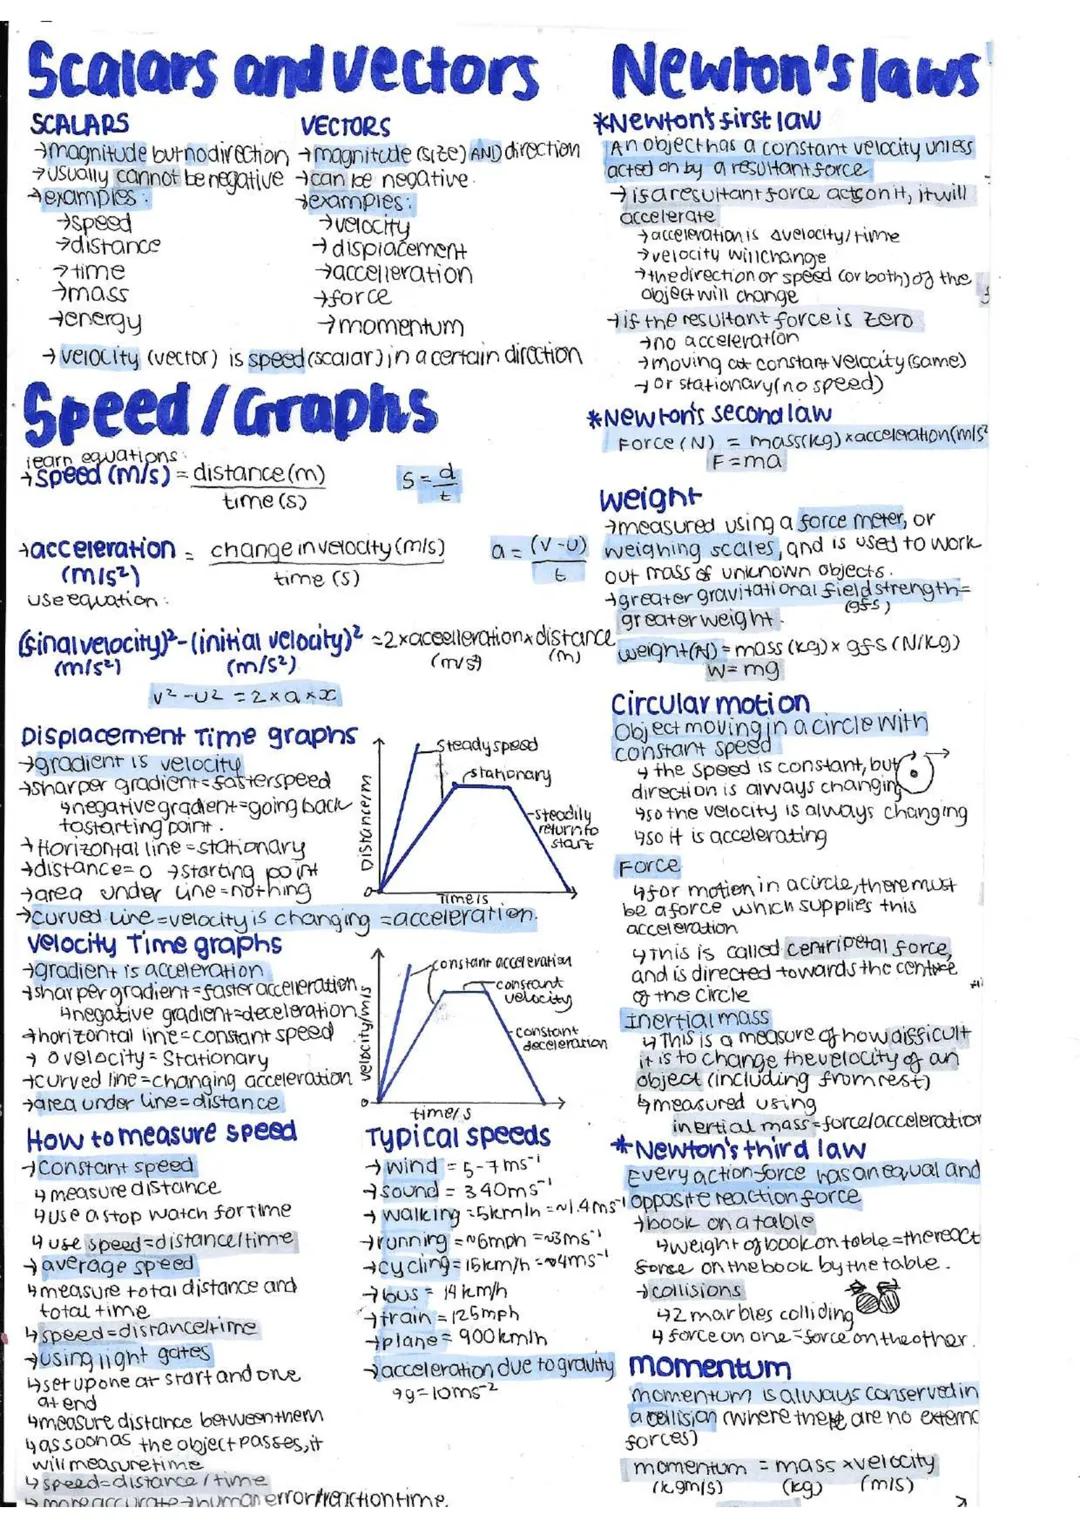 Scalars and vectors
SCALARS
→magnitude but no direction
→usually cannot be negative
→examples:
→speed
→distance
→time
→mass
→energy
VECTORS
→magnitude (size) AND direction
→can be negative.
→examples:
→velocity
→displacement
→accelleration
→force
→momentum
→velocity (vector) is speed (scalar) in a certain direction
Speed / Graphs
learn equations:
→speed (m/s) = distance (m)
time (s)
s = d
t
→acceleration = change in velocity (m/s)
(m/s²) time (s)
a = (v-u)
t
use equation:
(final velocity)² - (initial velocity)² = 2 x acceelleration x distance
(m/s²) (m/s²) (m/s²) (m)
v² - u² = 2 x a x x
Displacement Time graphs
→gradient is velocity
→sharper gradient = faster speed
↳negative gradient = going back
to starting point.
→Horizontal line = stationary
→distance = 0 → starting point
→area under line = nothing
→curved line = velocity is changing = acceleration.
Distance/m
steady speed
stationary
steadily
return to
start
Time/s
velocity Time graphs
→gradient is acceleration
→sharper gradient = faster accelleration
↳negative gradient = deceleration
→horizontal line = constant speed
→ 0 velocity = stationary
→curved line = changing acceleration
→area under line = distance
velocity/m/s
constant acceleration
constant
velocity
constant
deceleration
time/s
How to measure speed
→constant speed
↳measure distance
↳use a stop watch for time
↳use speed=distance/time
→average speed
↳measure total distance and
total time
↳speed=distance/time
→using light gates
↳set up one at start and one
at end
↳measure distance between them
↳as soon as the object passes, it
will measure time
↳speed=distance/time
↳more accurate → human error/reaction time.
Typical speeds
→wind = 5-7ms⁻¹
→sound = 340ms⁻¹
→walking = 5km/h = ~1.4ms⁻¹
→running = ~6mph = ~3ms⁻¹
→cycling = 15km/h = ~4ms⁻¹
→bus = 14km/h
→train = 125mph
→plane = 900km/h
→acceleration due to gravity
→g=10ms⁻²
Newton's laws
*Newton's first law
An object has a constant velocity unless
acted on by a resultant force
→is a resultant force acts on it, it will
accelerate
→acceleration is Δvelocity/time
→velocity will change
→the direction or speed (or both) of the
object will change
→if the resultant force is zero
→no acceleration
→moving at constant velocity (same)
→or stationary (no speed)
*Newton's second law
Force (N) = mass(kg) x acceleration(m/s²
F=ma
weight
→measured using a force meter, or
weighing scales, and is used to work
out mass of unknown objects.
→greater gravitational field strength =
(gfs)
greater weight.
weight (N) = mass (kg) x gfs (N/kg)
W=mg
Circular motion
Object moving in a circle with
constant speed
↳the speed is constant, but
direction is always changing
↳so the velocity is always changing
↳so it is accelerating
Force
↳for motion in a circle, there must
be a force which supplies this
acceleration
↳This is called centripetal force,
and is directed towards the centre
of the circle
Inertial mass
↳This is a measure of how difficult
it is to change the velocity of an
object (including from rest)
↳measured using
inertial mass = force/acceleration
*Newton's third law
Every action force has an equal and
opposite reaction force
→book on a table
↳weight of book on table = the react
force on the book by the table.
→collisions
↳2 marbles colliding
↳force on one = force on the other.
momentum
momentum is always conserved in
a collision (where there are no extern
forces)
momentum = mass x velocity
(kgm/s) (kg) (m/s)